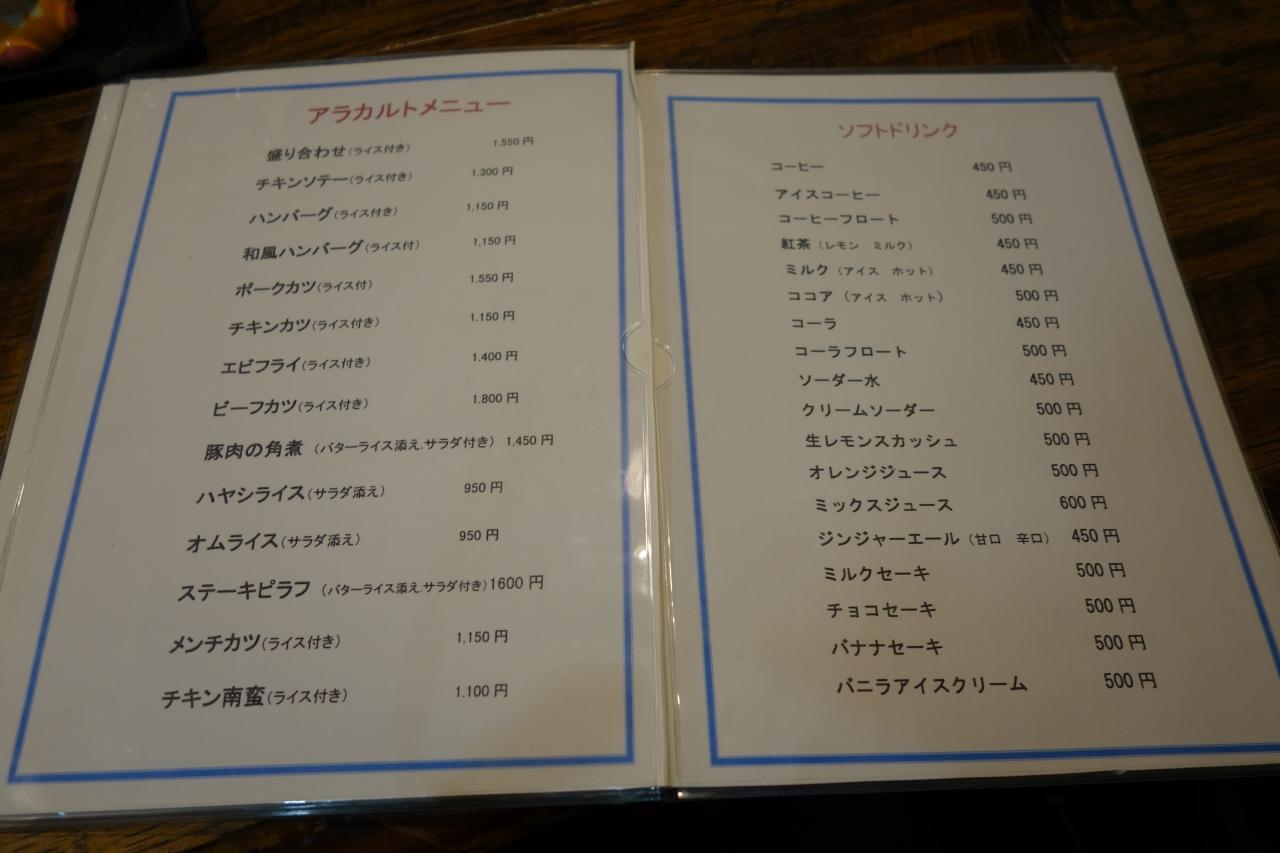 アラカルトメニュー
盛り合わせ(ライス付き) 1.550 円
チキンソテー(ライス付き) 1.300 円
ハンバーグ(ライス付き) 1,150 円
和風ハンバーグ(ライス付) 1,150 円
ポークカツ(ライス付) 1.550 円
チキンカツ(ライス付き) 1.150 円
エビフライ(ライス付き) 1.400 円
ビーフカツ(ライス付き) 1.800 円
豚肉の角煮 (バターライス添え.サラダ付き) 1.450 円
ハヤシライス(サラダ添え) 950 円
オムライス(サラダ添え) 950 円
ステーキピラフ (バターライス添え.サラダ付き) 1600 円
メンチカツ(ライス付き) 1.150 円
チキン南蛮(ライス付き) 1.100 円
ソフトドリンク
コーヒー 450 円
アイスコーヒー 450 円
コーヒーフロート 500 円
紅茶(レモン ミルク) 450 円
ミルク(アイス ホット) 450 円
ココア(アイス ホット) 500 円
コーラ 450 円
コーラフロート 500 円
ソーダー水 450 円
クリームソーダー 500 円
生レモンスカッシュ 500 円
オレンジジュース 500 円
ミックスジュース 600 円
ジンジャーエール(甘口 辛口) 450 円
ミルクセーキ 500 円
チョコセーキ 500 円
バナナセーキ 500 円
バニラアイスクリーム 500 円